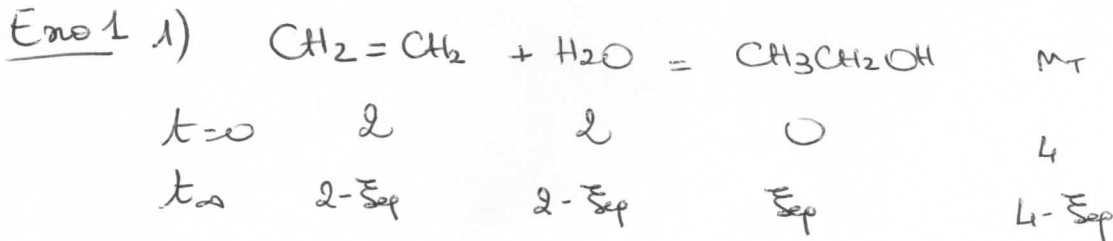 Exo 1 1) CH2 = CH2 + H2O = CH3CH2OH nT
t=0 2 2 0 4
t∞ 2-ξép 2-ξép ξép 4-ξép